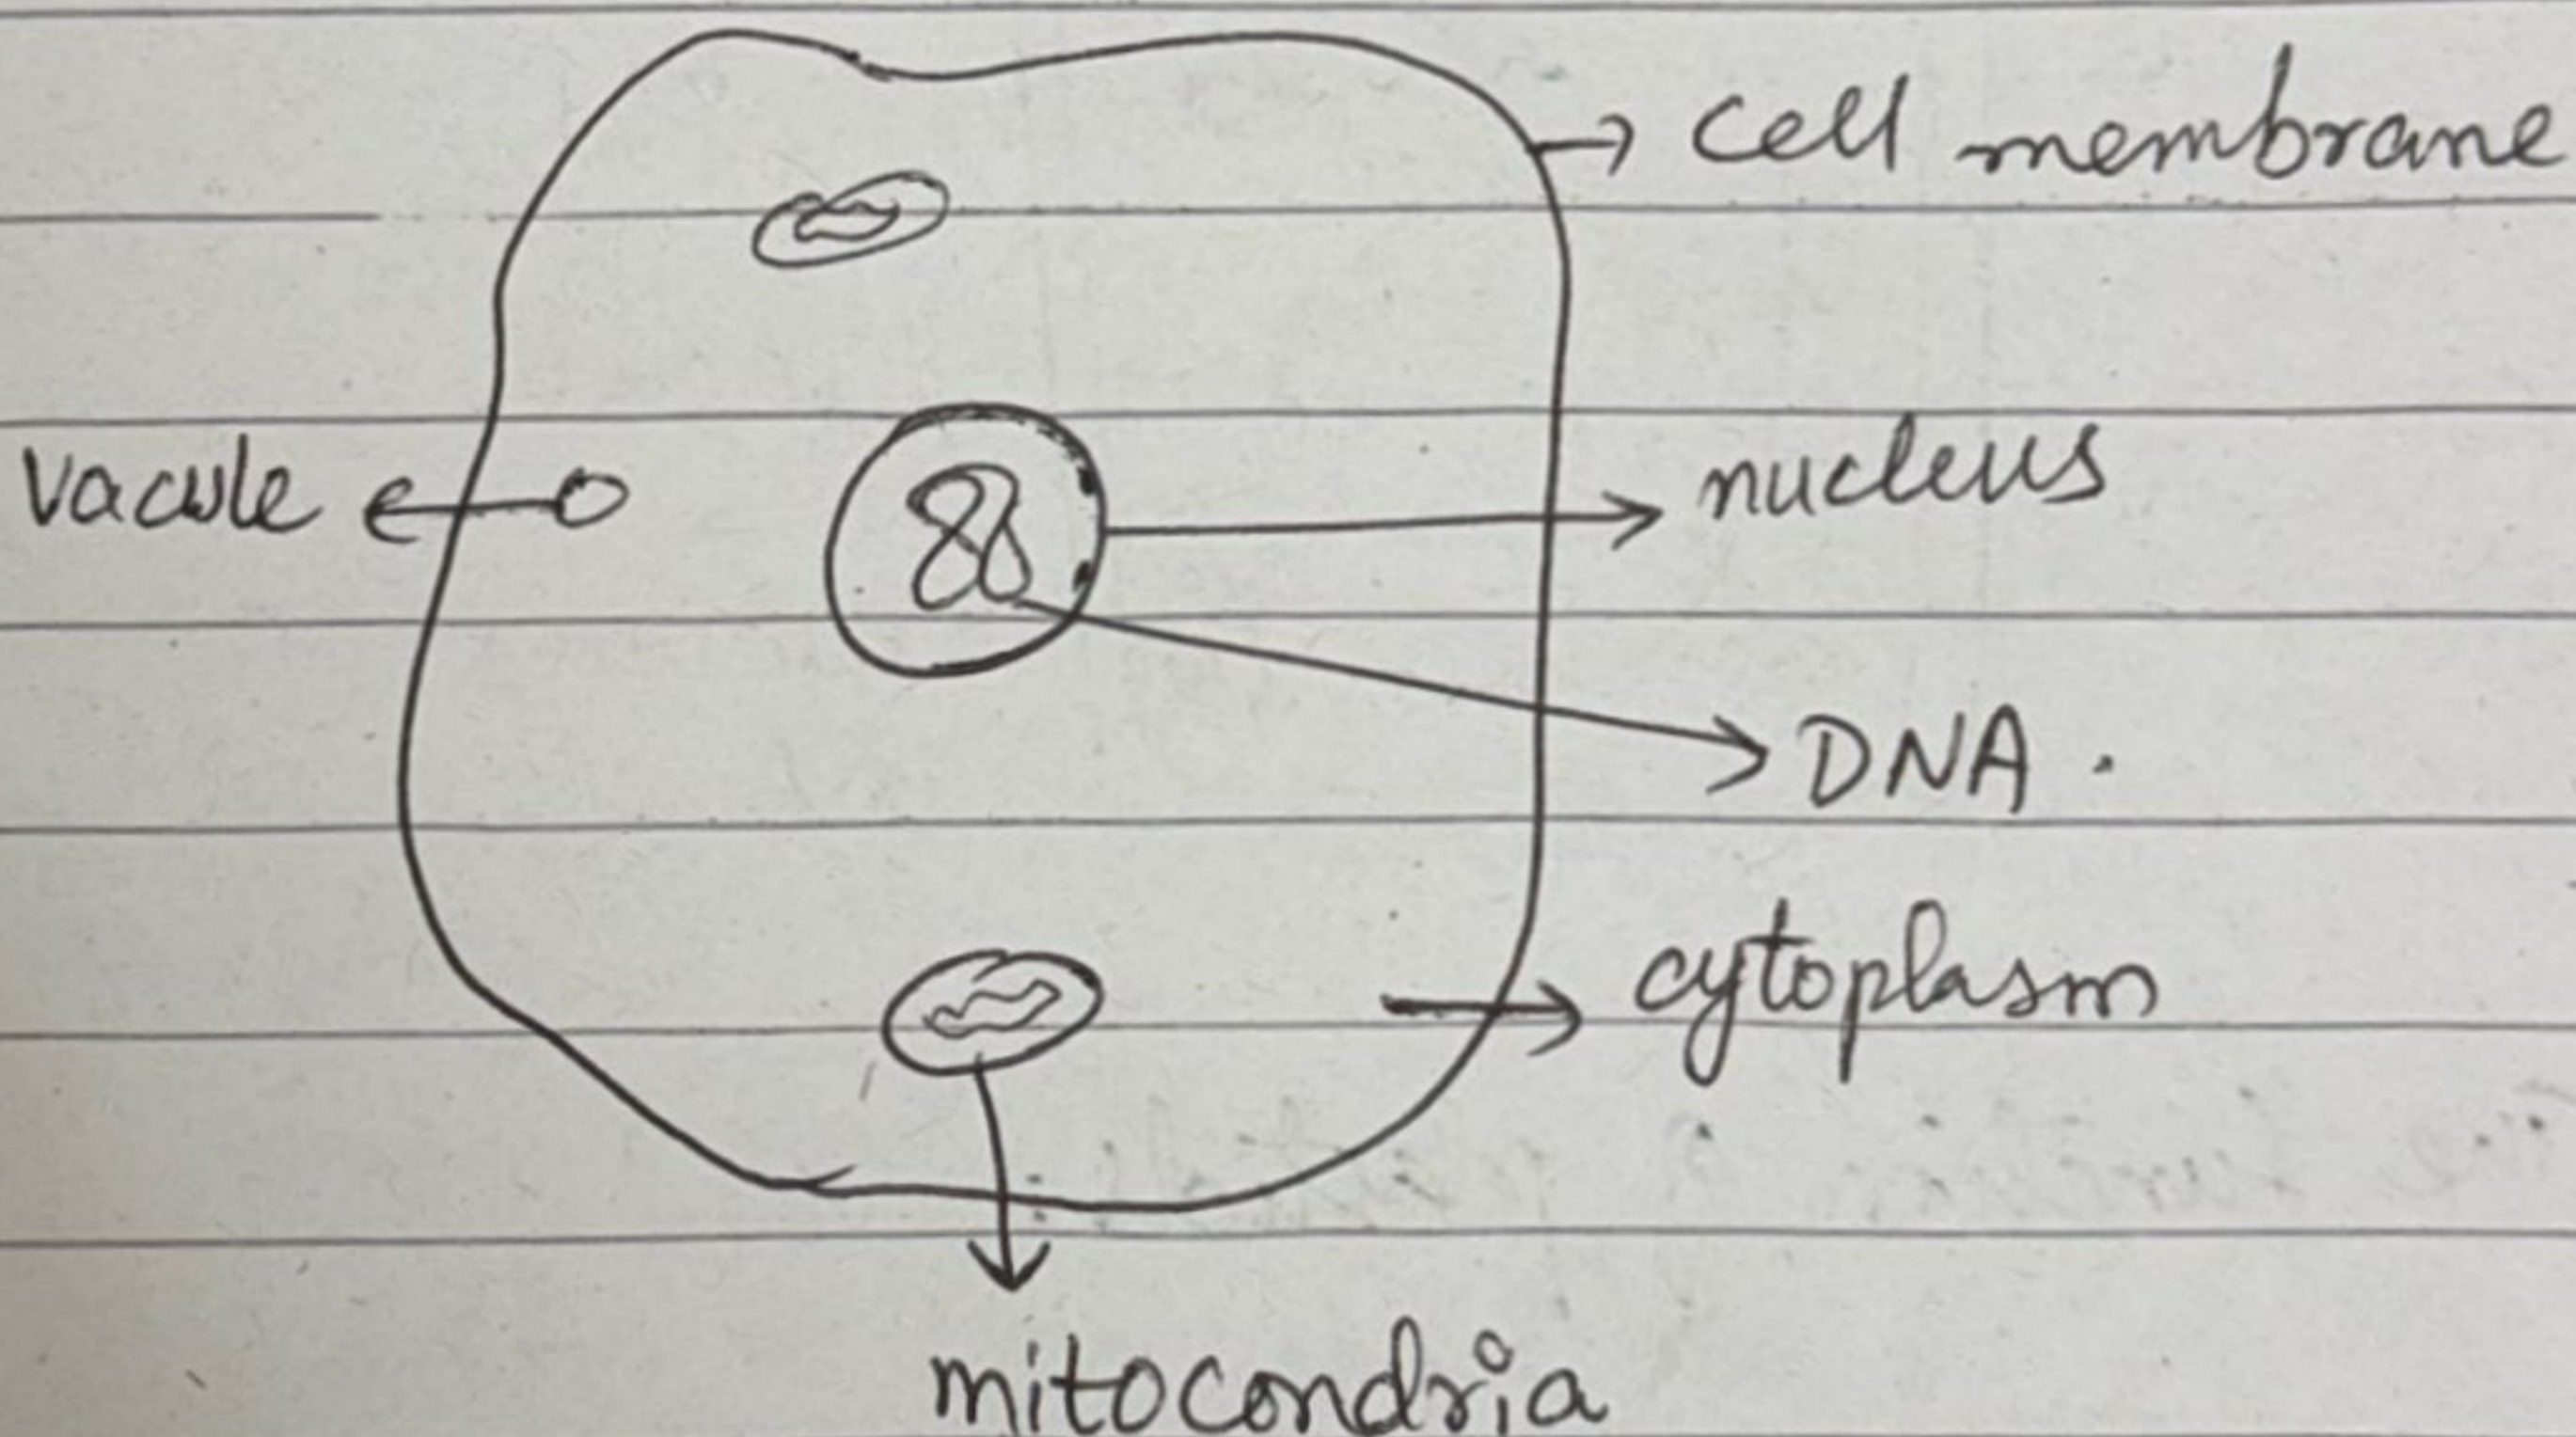 cell membrane
Vacule
nucleus
DNA.
cytoplasm
mitocondria